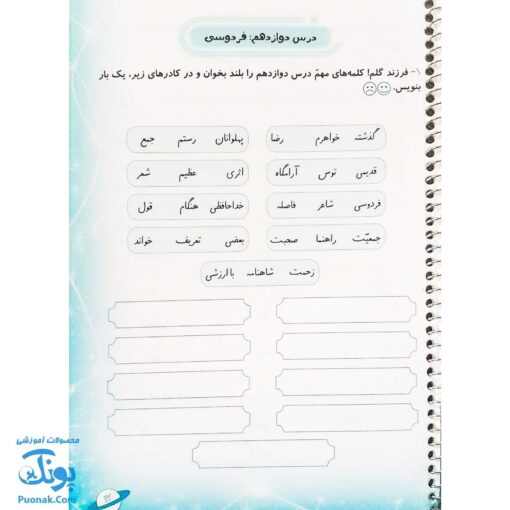 درس دوازدهم: فردوسی
۱- فرزند گلم! کلمه‌های مهمّ درس دوازدهم را بلند بخوان و در کادرهای زیر، یک بار
بنویس.
گذشته خواهرم رضا
پهلوانان رستم جمع
قدیمی توس آرامگاه
اثری عظیم شعر
فردوسی شاعر فاصله
خداحافظی هنگام قول
جمعیّت راهنما صحبت
بعضی تعریف خواند
زحمت شاهنامه باارزشی
محصولات آموزشی
پونک
Puonak.Com